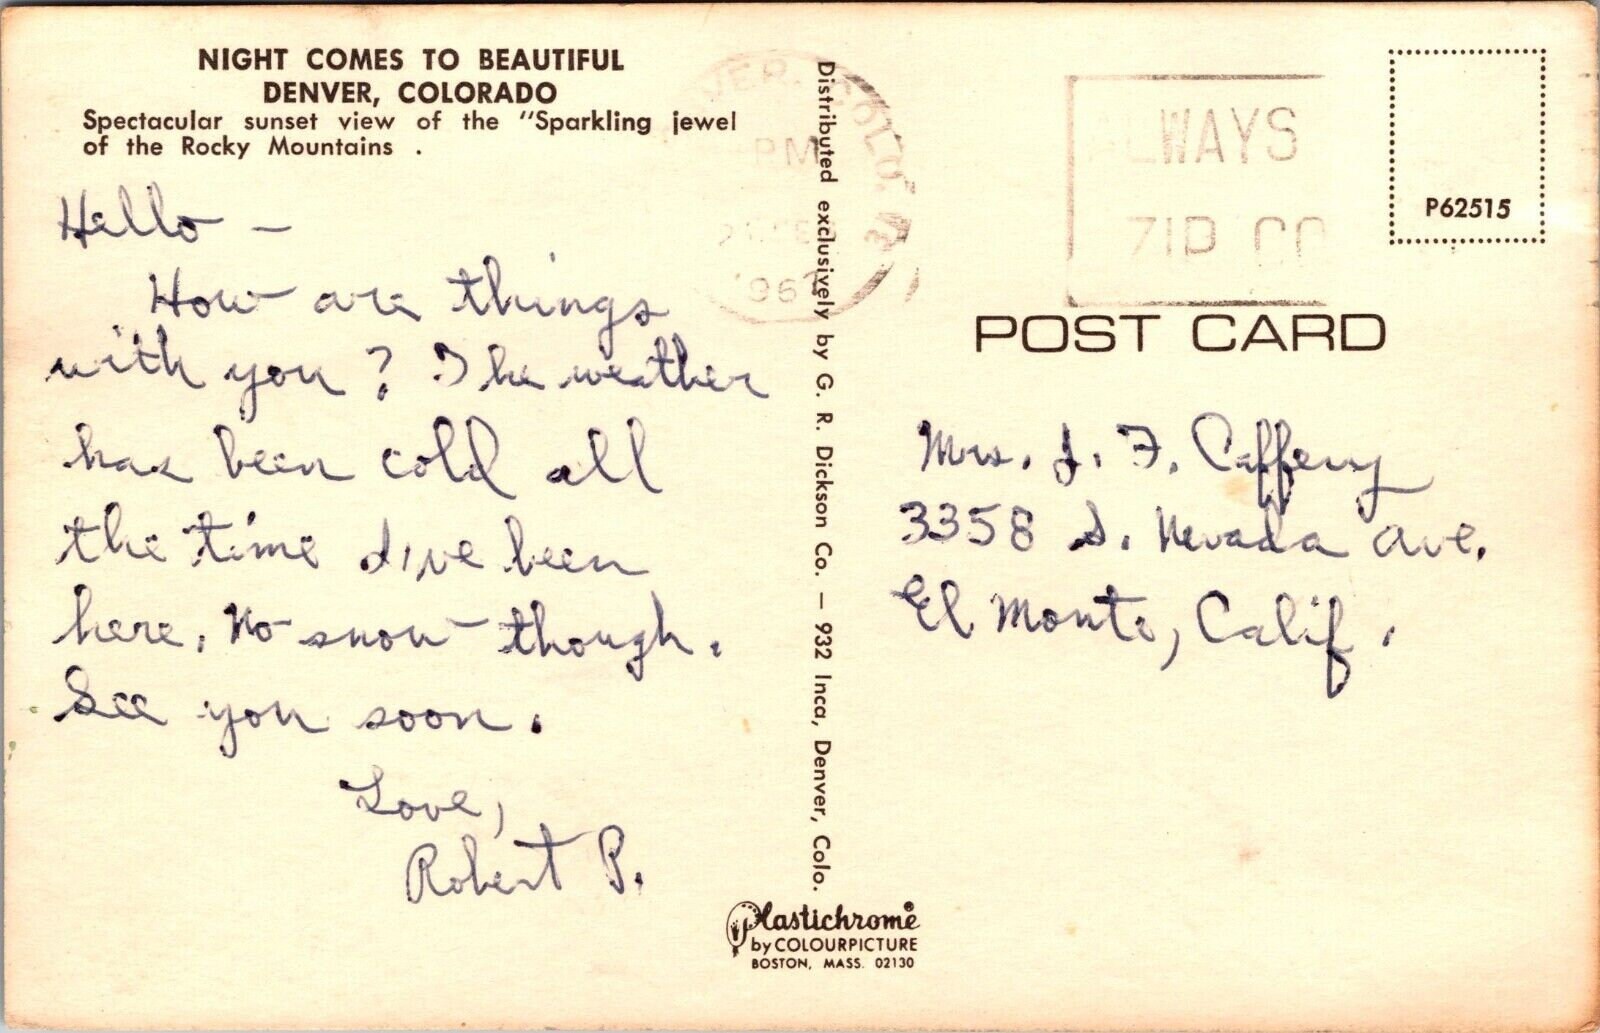 NIGHT COMES TO BEAUTIFUL
DENVER, COLORADO
Spectacular sunset view of the "Sparkling jewel
of the Rocky Mountains .
Hello -
How are things
with you? The weather
has been cold all
the time I've been
here. No snow though.
See you soon.
Love,
Robert P.
Distributed exclusively by G. R. Dickson Co. – 932 Inca, Denver, Colo.
Plastichrome®
by COLOURPICTURE
BOSTON, MASS. 02130
COLO.
PM
196
WAYS
ZIP CO
P62515
POST CARD
Mrs. J. F. Caffery
3358 S. Nevada Ave.
El Monte, Calif.